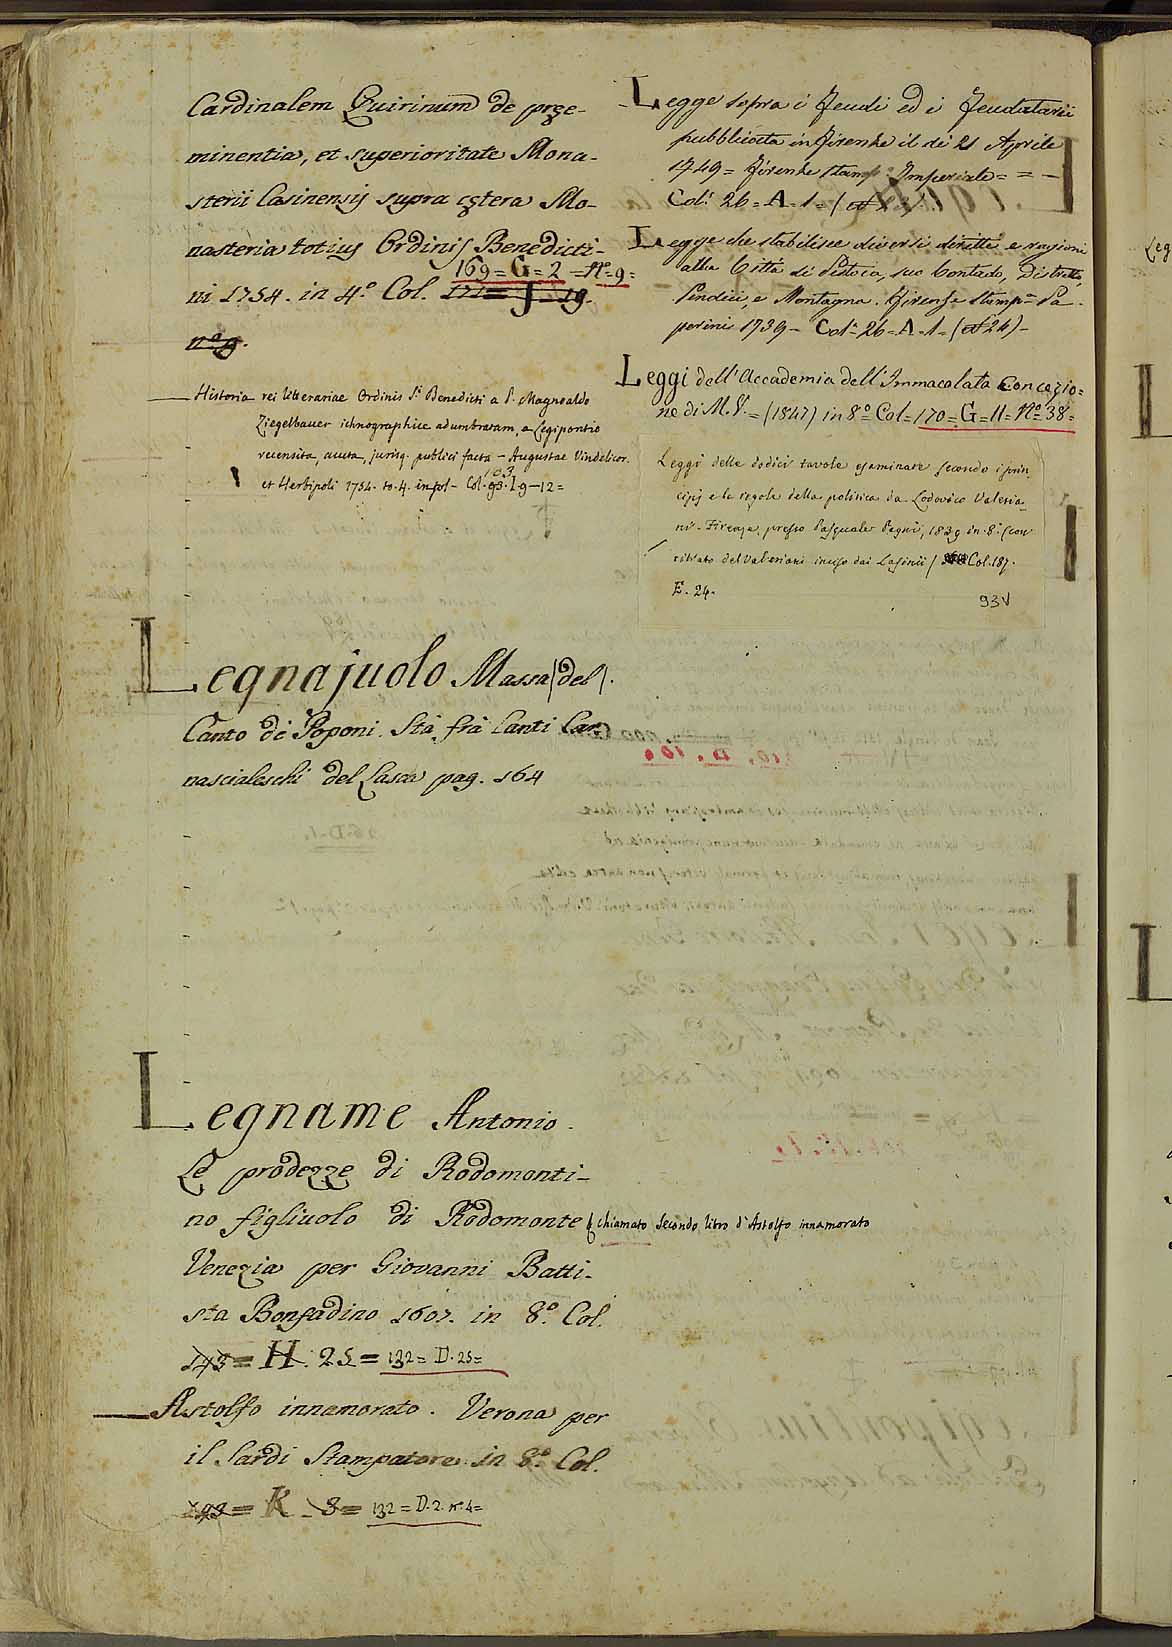 Cardinalem Quirinum de pręe-
minentia, et superioritate Mona-
sterii Casinensis supra cętera Mo-
nasteria totius Ordinis Benedicti-
169=G=2=N°.9=
ni 1754. in 4.° Col. 171= J 19.
n° 9.
Historia rei litterariae Ordinis S.i Benedicti a P. Magnoaldo
Ziegelbauer ichnographice adumbratam, a Legipontio
recensita, aucta, jurisq. publici facta - Augustae Vindelicor.
103
et Herbipoli 1754. to. 4. in fol - Col. 93. I 9-12=
Legnajuolo Massa (del).
Canto de' Poponi. Stà frà Canti Car
nascialeschi del Lasca pag. 164
Legname Antonio.
Le prodezze di Rodomonti-
no figliuolo di Rodomonte chiamato Secondo libro d'Astolfo innamorato
Venezia per Giovanni Batti-
sta Bonfadino 1607. in 8.° Col.
143= H. 25= 132= D. 25=
Astolfo innamorato. Verona per
il Sardi Stampatore in 8.° Col.
193= K - 8= 132= D. 2. n. 4=
Legge sopra i Feudi ed i Feudatarii
pubblicata in Firenze il di 21 Aprile
1749= Firenze Stamp. Imperiale= = -
Col. 26= A=1=
Legge che stabilisce diversi diritti e ragioni
alla Città di Pistoia, suo Contado, Distretto,
Pendici, e Montagna. Firenze Stamp= Pa-
perini 1739- Col= 26=A=1= ( 24)-
Leggi dell'Accademia dell'Immacolata Concezio=
ne di M.V.= (1847) in 8°= Col= 170=G=11=N° 38=
Leggi delle dodici tavole esaminate secondo i prin
cipj e le regole della politica da Lodovico Valeria
ni - Firenze, presso Pasquale Pagni, 1839 in 8. (con
ritratto del Valeriani inciso dai Lasinii) Col. 187.
E. 24.
93V
Leg